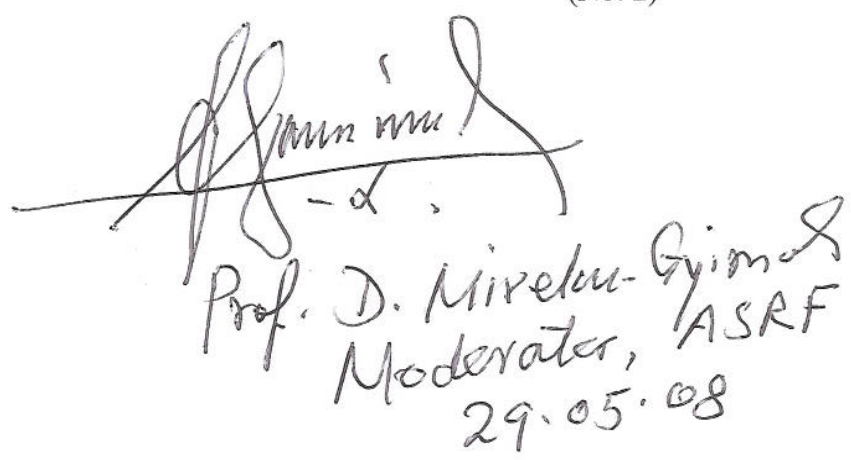 Prof. D. Mireku-Gyimah
Moderator, ASRF
29.05.08